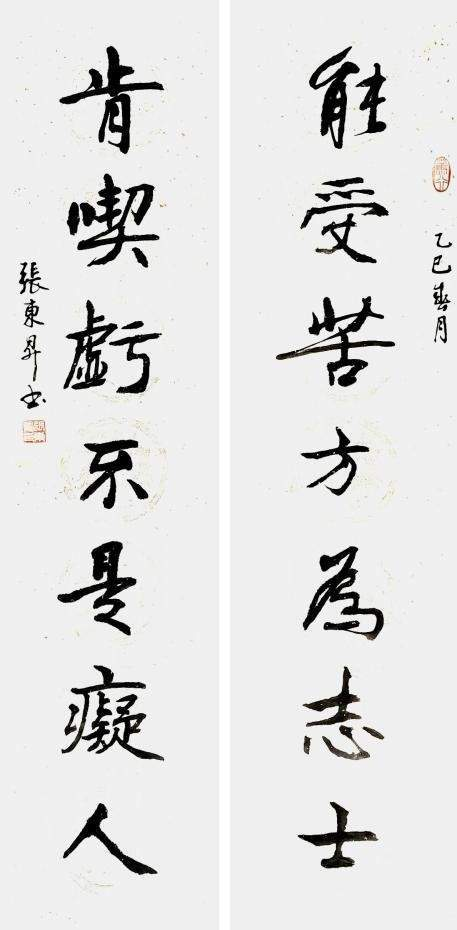 乙巳春月
能受苦方為志士
肯喫虧不是癡人
張東昇书